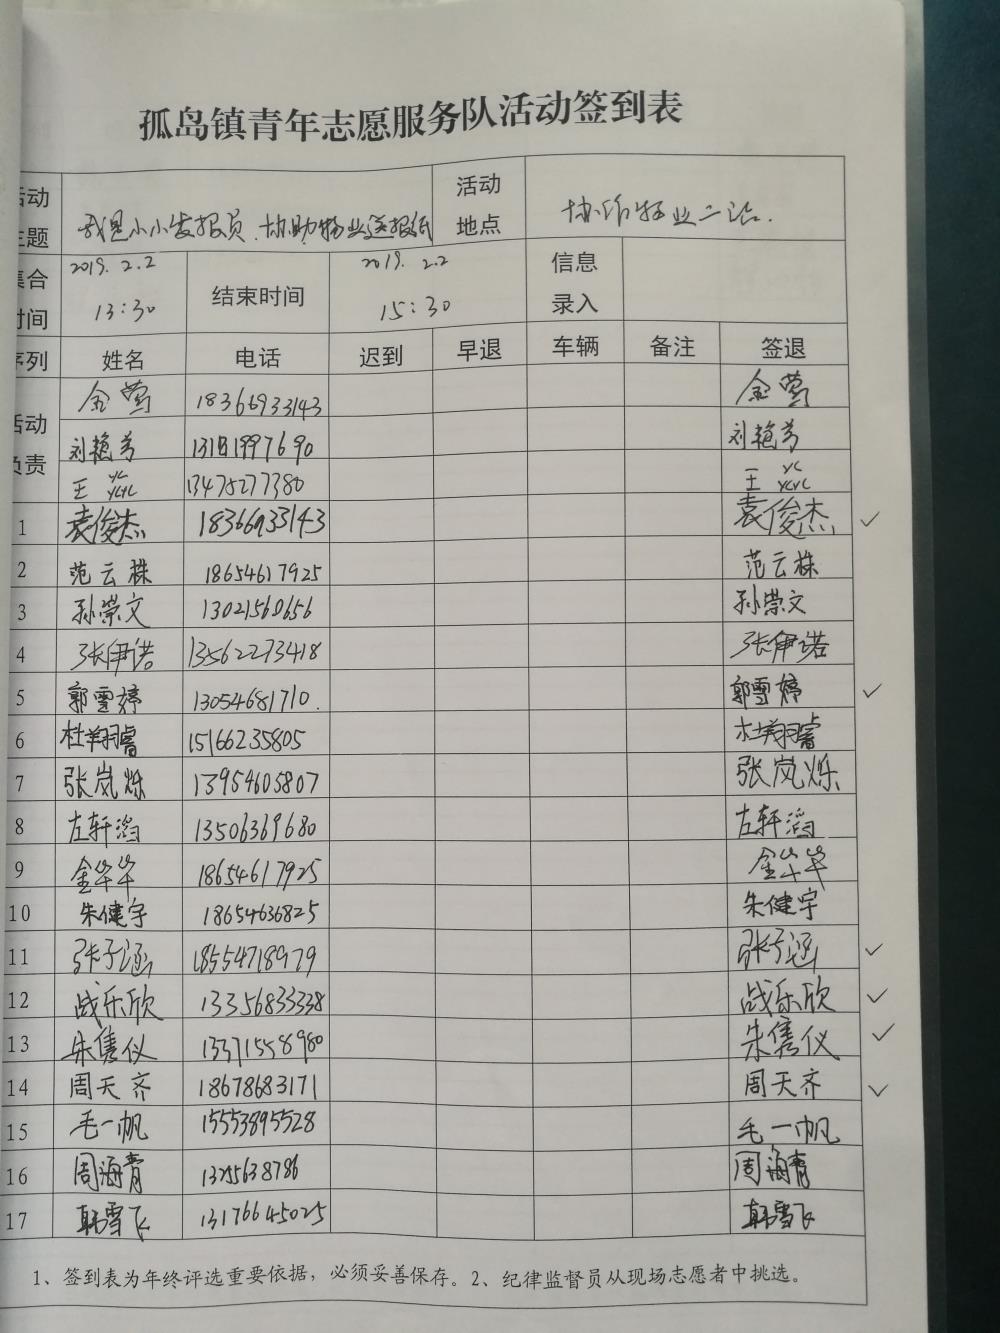 孤岛镇青年志愿服务队活动签到表
活动主题 我是小小发报员.协助物业送报纸 活动地点 协作物业二沾.
集合时间 2019.2.2 13:30 结束时间 2019.2.2 15:30 信息录入
序列 姓名 电话 迟到 早退 车辆 备注 签退
活动负责 金莺 18366933143 金莺
刘艳芳 刘艳芳
王 13475277380 王
1 袁俊杰 18366933143 袁俊杰 ✓
2 范云株 18654617925 范云株
3 孙崇文 13021560656 孙崇文
4 张伊诺 13562273418 张伊诺
5 郭雪婷 13054681710. 郭雪婷 ✓
6 杜翔睿 15166235805 杜翔睿
7 张岚烁 13954605807 张岚烁
8 左轩滔 13506369680 左轩滔
9 金华华 18654617925 金华华
10 朱健宇 18654636825 朱健宇
11 张子涵 18554718979 张子涵 ✓
12 战乐欣 13356833338 战乐欣 ✓
13 朱隽仪 13371558980 朱隽仪 ✓
14 周天齐 18678683171 周天齐 ✓
15 毛一帆 15553895528 毛一帆
16 周海青 周海青
17 韩雪飞 13176645025 韩雪飞
1、签到表为年终评选重要依据，必须妥善保存。2、纪律监督员从现场志愿者中挑选。